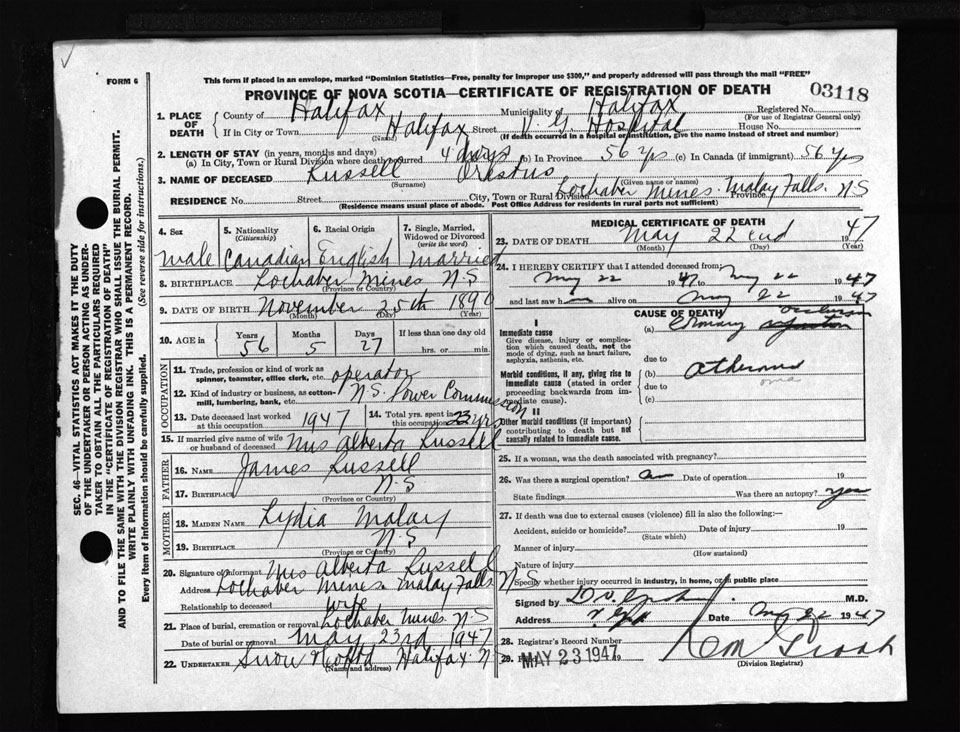 FORM 6
This form if placed in an envelope, marked "Dominion Statistics—Free, penalty for improper use $300," and properly addressed will pass through the mail "FREE"
PROVINCE OF NOVA SCOTIA—CERTIFICATE OF REGISTRATION OF DEATH
03118
SEC. 46—VITAL STATISTICS ACT MAKES IT THE DUTY
OF THE UNDERTAKER OR PERSON ACTING AS UNDER-
TAKER TO OBTAIN ALL THE PARTICULARS REQUIRED
IN THE "CERTIFICATE OF REGISTRATION OF DEATH"
AND TO FILE THE SAME WITH THE DIVISION REGISTRAR WHO SHALL ISSUE THE BURIAL PERMIT.
WRITE PLAINLY WITH UNFADING INK. THIS IS A PERMANENT RECORD.
Every item of Information should be carefully supplied. (See reverse side for instructions.)
1. PLACE OF DEATH
County of Halifax Municipality of Halifax Registered No.
(For use of Registrar General only)
If in City or Town Halifax Street V. G. Hospital House No.
(Name) (If death occurred in a hospital or institution, give the name instead of street and number)
2. LENGTH OF STAY (in years, months and days)
(a) In City, Town or Rural Division where death occurred 4 days (b) In Province 56 yrs (c) In Canada (if immigrant) 56 yrs
3. NAME OF DECEASED Russell Erastus
(Surname) (Given name or names)
RESIDENCE No. Street City, Town or Rural Division Lochaber Mines. Malay Falls. Province N S
(Residence means usual place of abode. Post Office Address for residents in rural parts not sufficient)
4. Sex
male
5. Nationality
(Citizenship)
Canadian
6. Racial Origin
English
7. Single, Married,
Widowed or Divorced
(write the word)
Married
8. BIRTHPLACE Lochaber Mines N.S
(Province or Country)
9. DATE OF BIRTH November 25th 1890
(Month) (Day) (Year)
10. AGE in
Years 56
Months 5
Days 27
If less than one day old
hrs. or min.
OCCUPATION
11. Trade, profession or kind of work as
spinner, teamster, office clerk, etc. operator
12. Kind of industry or business, as cotton-
mill, lumbering, bank, etc. N.S. Power Commission
13. Date deceased last worked
at this occupation 1947
14. Total yrs. spent in
this occupation 23 yrs
15. If married give name of wife
or husband of deceased Mrs Alberta Russell
FATHER
16. NAME James Russell
17. BIRTHPLACE N.S
(Province or Country)
MOTHER
18. MAIDEN NAME Lydia Malay
19. BIRTHPLACE N.S
(Province or Country)
20. Signature of informant Mrs Alberta Russell
Address Lochaber Mines. Malay Falls. N S
Relationship to deceased wife
21. Place of burial, cremation or removal Lochaber Mines. N S
Date of burial or removal May 23rd 1947
22. UNDERTAKER Snow Halifax N S
(Name and address)
MEDICAL CERTIFICATE OF DEATH
23. DATE OF DEATH May 22nd 1947
(Month) (Day) (Year)
24. I HEREBY CERTIFY that I attended deceased from
May 22 1947 to May 22 1947
and last saw him alive on May 22 1947
CAUSE OF DEATH
I
Immediate cause
Give disease, injury or complica-
tion which caused death, not the
mode of dying, such as heart failure,
asphyxia, asthenia, etc.
(a) occlusion
due to
Morbid conditions, if any, giving rise to
immediate cause (stated in order
proceeding backwards from im-
mediate cause).
(b) Atheroma
oma
due to
(c)
II
Other morbid conditions (if important)
contributing to death but not
causally related to immediate cause.
25. If a woman, was the death associated with pregnancy?
26. Was there a surgical operation? Date of operation 19
State findings Was there an autopsy? yes
27. If death was due to external causes (violence) fill in also the following:—
Accident, suicide or homicide? Date of injury 19
(State which)
Manner of injury
(How sustained)
Nature of injury
Specify whether injury occurred in industry, in home, or in public place
Signed by M.D.
Address Date May 22 1947
28. Registrar's Record Number
29. MAY 23 1947 19
(Division Registrar)